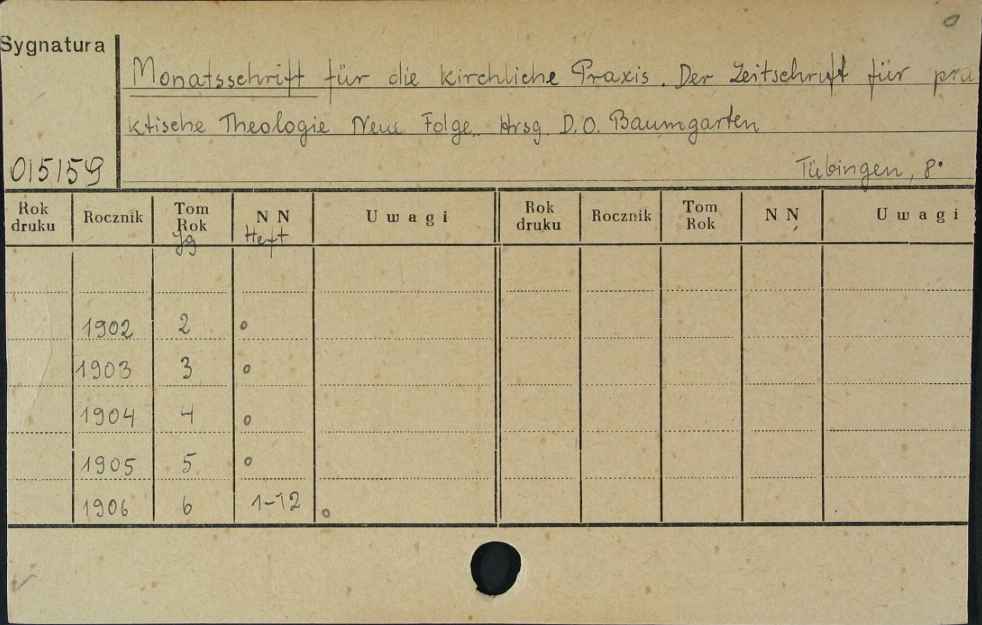 Sygnatura
Monatsschrift für die kirchliche Praxis. Der Zeitschrift für pra
ktische Theologie Neue Folge. Hrsg. D.O. Baumgarten
015159
Tübingen, 8°
Rok druku Rocznik Tom Rok N N U w a g i Rok druku Rocznik Tom Rok N N U w a g i
Jg Heft
1902 2 o
1903 3 o
1904 4 o
1905 5 o
1906 6 1-12 o